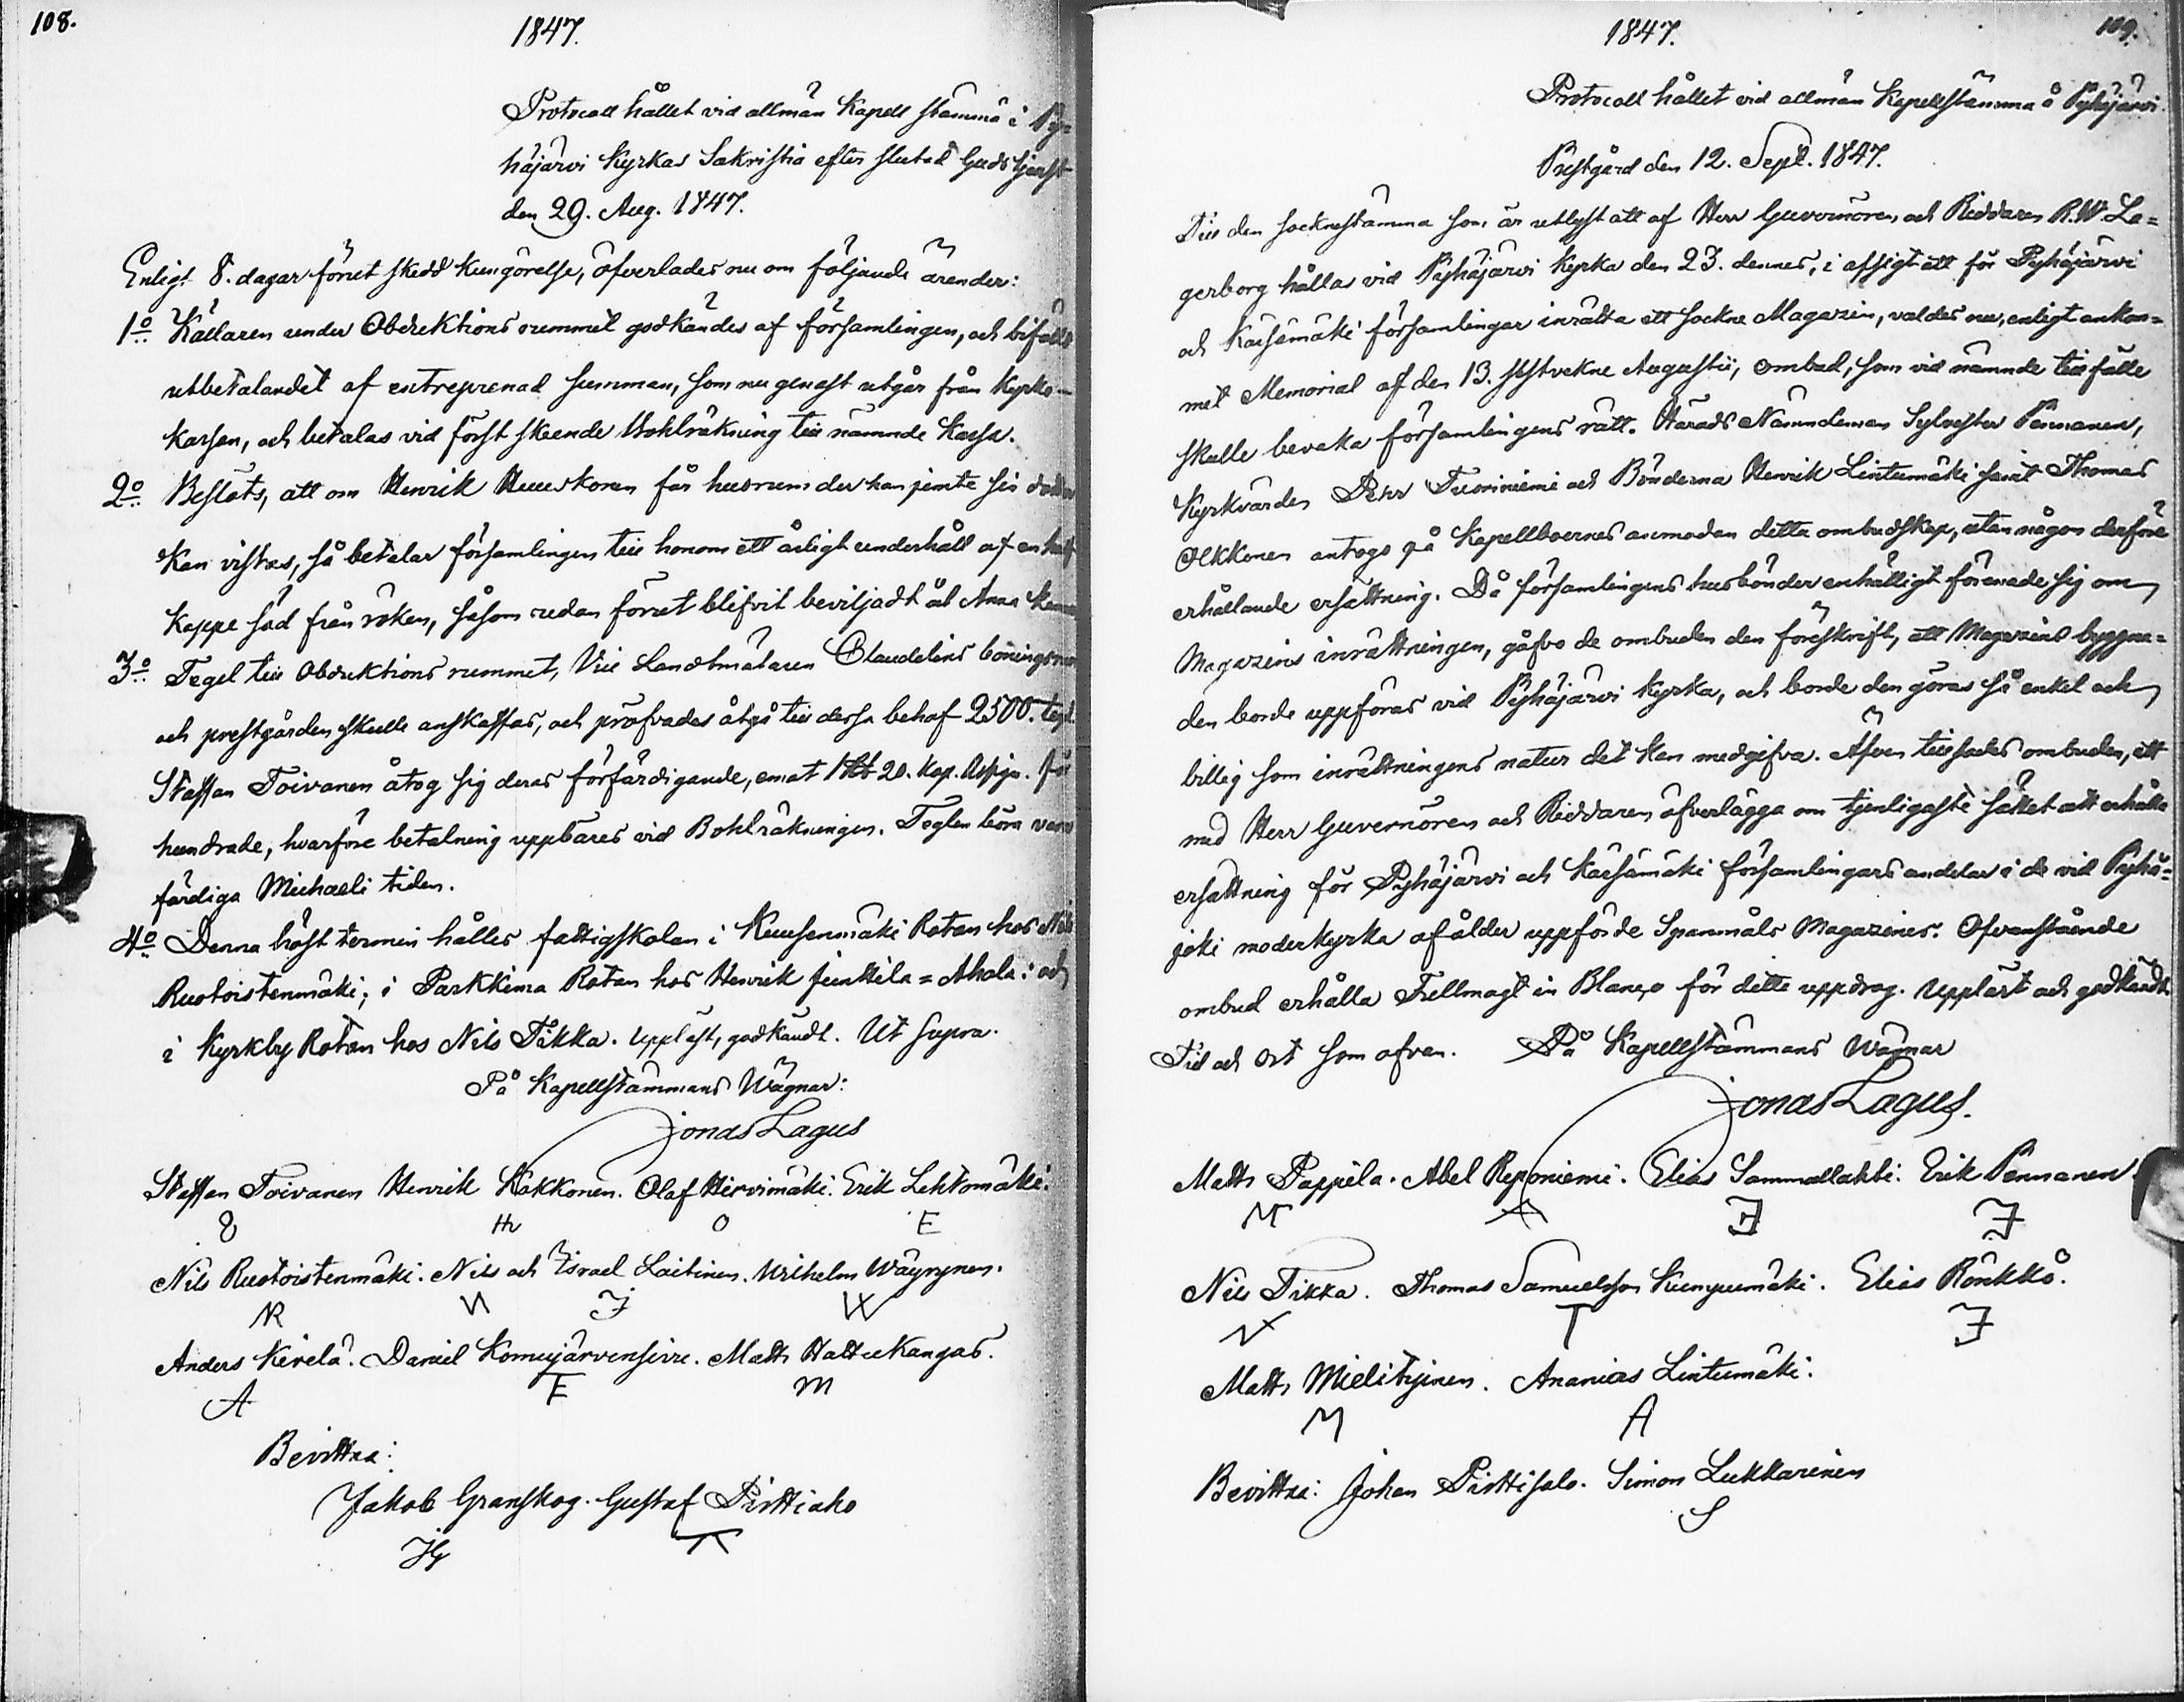 108.
1847.
Protocoll hållet vid allmän Kapell stämma i Py-
häjärvi Kyrkas Sakristia efter slutad Gudstjenst
den 29. Aug. 1847.
Enligt 8. dagar förut skedd kungörelse, öfverlades nu om följande ärender:
1o Källaren under Obduktions rummet godkändes af församlingen, och bifölls
utbetalandet af entreprenad summan, som nu genast utgår från Kyrko-
kassan, och betalas vid först skeende Bohlräkning till nämnde Kassa.
2o Beslöts, att om Henrik Huuskonen får husrum der han jemte sin dotter
kan vistas, så betalar församlingen till honom ett årligt underhåll af en half
kappe säd från röken, såsom redan förut blifvit beviljadt åt Anna
3o Tegel till Obduktions rummet, Vice Landtmätaren Claudelins boningsrum
och prestgården skulle anskaffas, och pröfvades åtgå till dessa behof 2500. tegel
Staffan Toivanen åtog sig deras förfärdigande, emot 1 Rb 20. Kop. Silfver för
hundrade, hvarföre betalning uppbäres vid Bohlräkningen. Teglen böra vara
färdiga Michaeli tiden.
4o Denna höst termin hålles fattigskolan i Kuusenmäki Rotan hos Nils
Ruotoistenmäki; i Parkkima Rotan hos Henrik Junttila=Ahola: och
i Kyrkby Rotan hos Nils Tikka. Uppläst, godkändt. Ut supra.
På Kapellstämmans Wägnar:
Jonas Lagus
Staffan Toivanen Henrik Kokkonen. Olaf Hirvimäki. Erik Lehtomäki.
8 H O E
Nils Ruotoistenmäki. Nils och Israel Laitinen. Wilhelm Wäyrynen.
NR N J W
Anders Kerelä. Daniel Komujärvensivu. Matts Hattukangas.
A E M
Bevittna:
Jakob Granskog. Gustaf Pirttiaho
JG
1847.
109.
Protocoll hållet vid allmän Kapellstämma å Pyhäjärvi
Prestgård den 12. Sept. 1847.
Till den socknestämma som är utlyst att af Herr Guvernören och Riddaren R.W. La=
gerborg hållas vid Pyhäjärvi Kyrka den 23. dennes, i afsigt att för Pyhäjärvi
och Kärsämäki församlingar inrätta ett sockne Magazin, valdes nu, enligt ankom=
met Memorial af den 13. sistvekne Augustii, ombud, som vid nämnde tillfälle
skulle bevaka församlingens rätt. Härads Nämndeman Sylvester Pennanen,
Kyrkvärden Pehr Tuoriniemi och Bönderna Henrik Lintumäki samt Thomas
Olkkonen antogo på Kapellboernes anmodan detta ombudskap, utan någon derföre
erhållande ersättning. Då församlingens husbönder enhälligt förenade sig om
Magazins inrättningen, gåfvo de ombuden den föreskrift, att Magazins byggna=
den borde uppföras vid Pyhäjärvi Kyrka, och borde den göras så enkel och
billig som inrättningens natur det kan medgifva. Äfven tillsades ombuden, att
med Herr Guvernören och Riddaren öfverlägga om tjenligaste sättet att erhålla
ersättning för Pyhäjärvi och Kärsämäki församlingars andelar i de vid Pyhä=
joki moderkyrka af ålder uppförde Spanmåls Magaziner. Ofvanstående
ombud erhålla Fullmagt in Blanco för detta uppdrag. Uppläst och godkändt.
Tid och Ort som ofvan. På Kapellstämmans Wägnar
Jonas Lagus.
Matts Pappila. Abel Reponiemi. Elias Sammallahti. Erik Pennanen.
M A E J
Nils Tikka. Thomas Samuelsson Kumpumäki. Elias Rönkkö.
N T J
Matts Mielityinen. Ananias Lintumäki.
M A
Bevittna: Johan Pirttisalo. Simon Lukkarinen
S